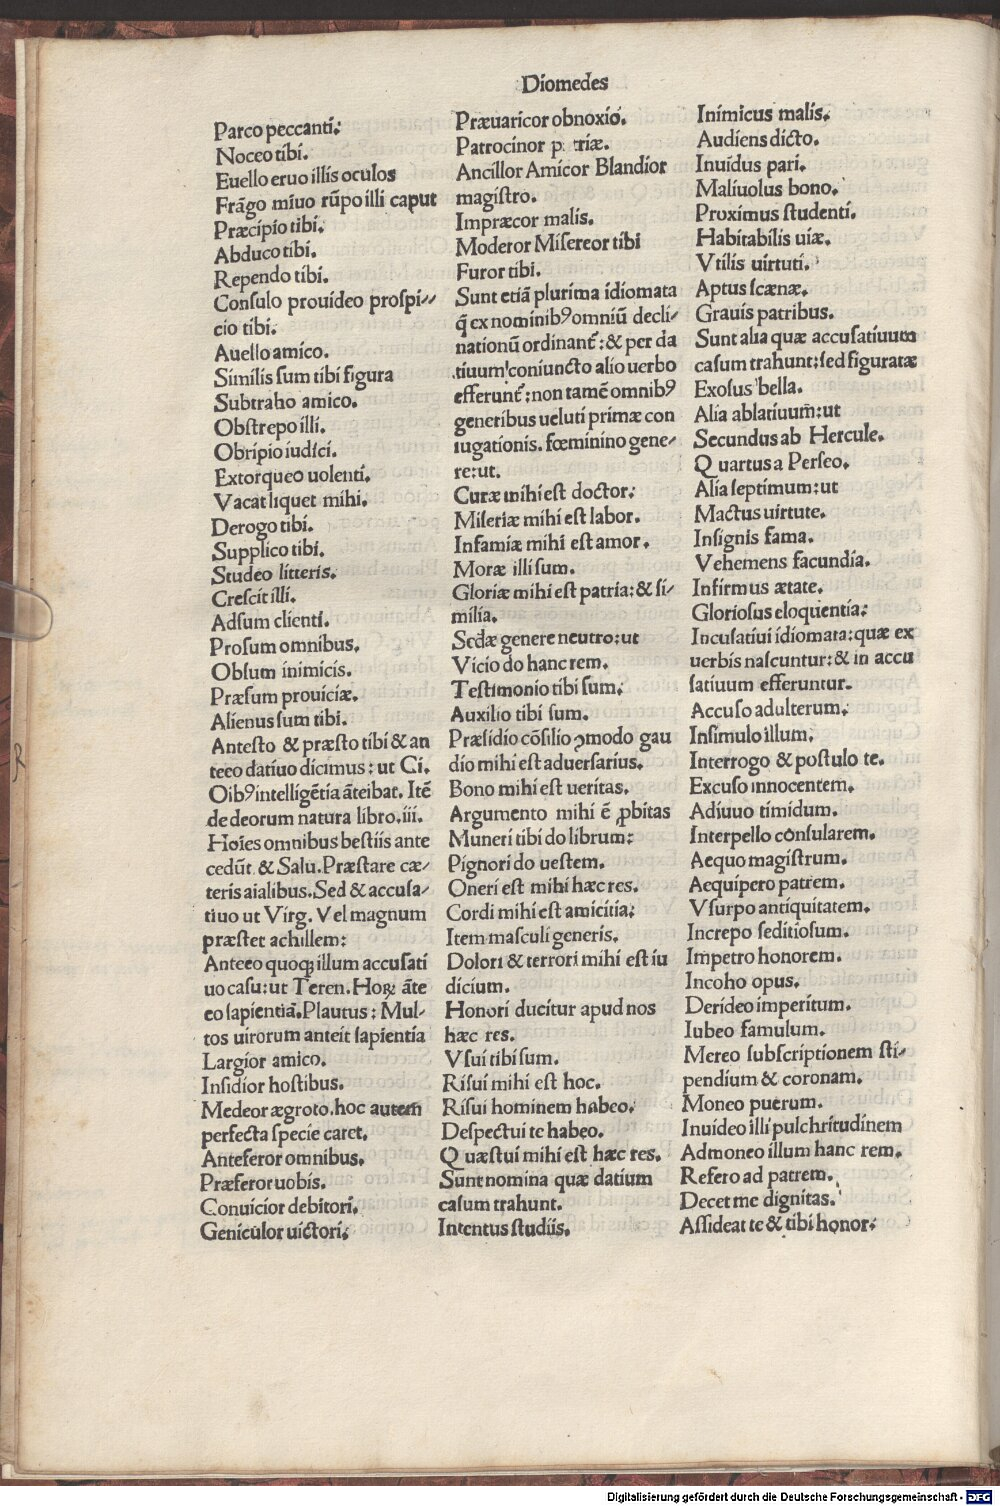 Diomedes
Parco peccanti:
Noceo tibi.
Euello eruo illis oculos
Frãgo miuo rũpo illi caput
Præcipio tibi.
Abduco tibi.
Rependo tibi.
Consulo prouideo prospi⸗
cio tibi.
Auello amico.
Similis sum tibi figura
Subtraho amico.
Obstrepo illi.
Obripio iudici.
Extorqueo uolenti.
Vacat liquet mihi.
Derogo tibi.
Supplico tibi.
Studeo litteris.
Crescit illi.
Adsum clienti.
Prosum omnibus.
Obsum inimicis.
Præsum prouiciæ.
Alienus sum tibi.
Antesto & præsto tibi & an
teeo datiuo dicimus: ut Ci.
Oibꝰ intelligẽtia ãteibat. Itẽ
de deorum natura libro.iii.
Hoies omnibus bestiis ante
cedũt. & Salu. Præstare cæ⸗
teris aialibus. Sed & accusa⸗
tiuo ut Virg. Vel magnum
præstet achillem:
Anteeo quoqȝ illum accusati
uo casu: ut Teren. Hoꝝ ãte
eo sapientiã. Plautus: Mul⸗
tos uirorum anteit sapientia
Largior amico.
Insidior hostibus.
Medeor ægroto. hoc autem
perfecta specie caret.
Anteferor omnibus.
Præferor uobis.
Conuicior debitori.
Geniculor uictori:
Præuaricor obnoxio.
Patrocinor p triæ.
Ancillor Amicor Blandior
magistro.
Impræcor malis.
Moderor Misereor tibi
Furor tibi.
Sunt etiã plurima idiomata
q̃ ex nominibꝰ omniũ decli⸗
nationũ ordinant̃: & per da
tiuum coniuncto alio uerbo
efferunt̃: non tamẽ omnibꝰ
generibus ueluti primæ con
iugationis. fœminino gene⸗
re: ut.
Curæ mihi est doctor:
Miseriæ mihi est labor.
Infamiæ mihi est amor.
Moræ illi sum.
Gloriæ mihi est patria: & si⸗
milia.
Sedæ genere neutro: ut
Vicio do hanc rem.
Testimonio tibi sum:
Auxilio tibi sum.
Præsidio cõsilio ꝯmodo gau
dio mihi est aduersarius.
Bono mihi est ueritas.
Argumento mihi ẽ ꝓbitas
Muneri tibi do librum:
Pignori do uestem.
Oneri est mihi hæc res.
Cordi mihi est amicitia:
Item masculi generis.
Dolori & terrori mihi est iu
dicium.
Honori ducitur apud nos
hæc res.
Vsui tibi sum.
Risui mihi est hoc.
Risui hominem habeo.
Despectui te habeo.
Quæstui mihi est hæc res.
Sunt nomina quæ datium
casum trahunt.
Intentus studiis.
Inimicus malis.
Audiens dicto.
Inuidus pari.
Maliuolus bono.
Proximus studenti.
Habitabilis uiæ.
Vtilis uirtuti.
Aptus scænæ.
Grauis patribus.
Sunt alia quæ accusatiuum
casum trahunt: sed figuratæ
Exosus bella.
Alia ablatiuum: ut
Secundus ab Hercule.
Quartus a Perseo.
Alia septimum: ut
Mactus uirtute.
Insignis fama.
Vehemens facundia.
Infirmus ætate.
Gloriosus eloquentia:
Incusatiui idiomata: quæ ex
uerbis nascuntur: & in accu
satiuum efferuntur.
Accuso adulterum:
Insimulo illum:
Interrogo & postulo te.
Excuso innocentem.
Adiuuo timidum.
Interpello consularem.
Aequo magistrum.
Aequipero patrem.
Vsurpo antiquitatem.
Increpo seditiosum.
Impetro honorem.
Incoho opus.
Derideo imperitum.
Iubeo famulum.
Mereo subscriptionem sti⸗
pendium & coronam.
Moneo puerum.
Inuideo illi pulchritudinem
Admoneo illum hanc rem.
Refero ad patrem.
Decet me dignitas.
Assideat te & tibi honor:
Digitalisierung gefördert durch die Deutsche Forschungsgemeinschaft - DFG